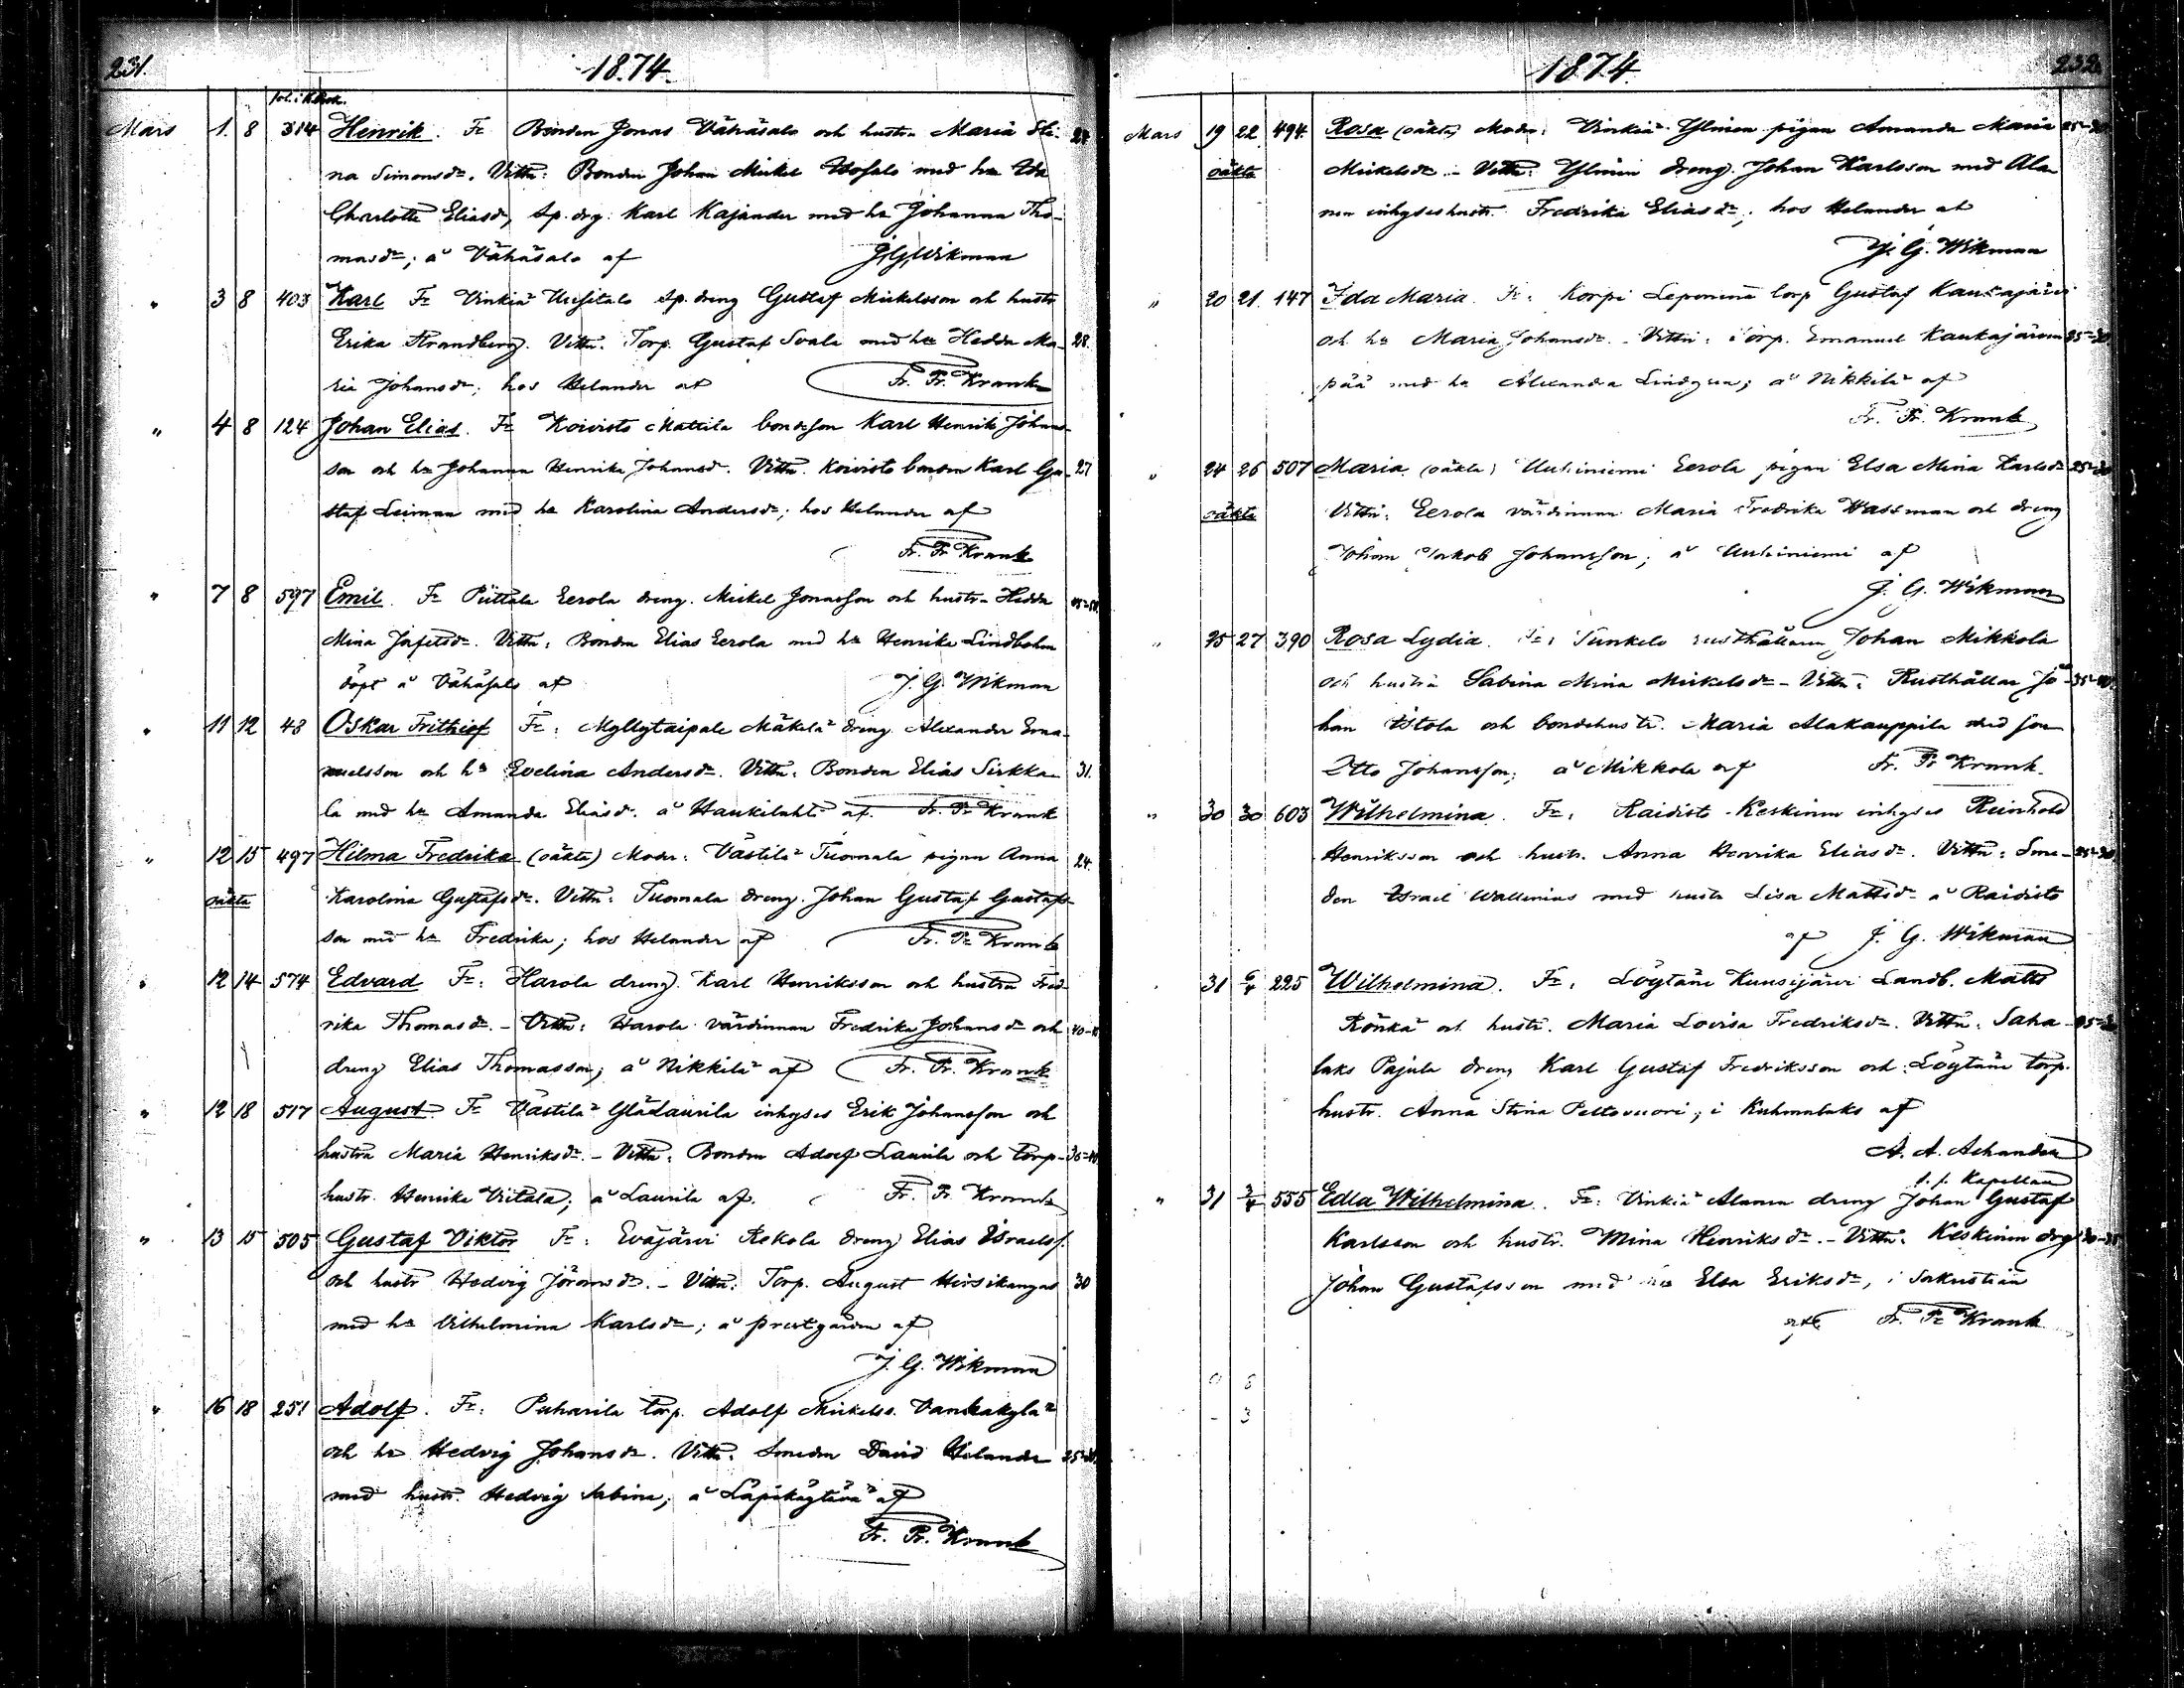 231.
1874.
fol. i K.Bok.
Mars 1. 8 314 Henrik. Fr. Bonden Jonas Vähäsalo och hustru Maria Ste- 27
na Simonsdr. Vittn: Bonden Johan Mickel Uosalo med hu Ida
Charlotta Eliasdr, sp. drg. Karl Kajander med hu Johanna Tho-
masdr; å Vähäsalo af J.G. Wikman
" 3 8 403 Karl Fr Vinkiä Uusitalo sp. dreng Gustaf Mickelsson och hustru
Erika Strandberg. Vittn. Torp. Gustaf Soala med hu Hedda Ma- 28.
ria Johansdr; hos Helander af Fr. Fr. Krank
" 4 8 124 Johan Elias. Fr Koivisto Mattila bondeson Karl Henrik Johans-
son och hu Johanna Henrika Johansdr. Vittn. Koivisto bonden Karl Gu- 27
staf Leiman med hu Karolina Andersdr; hos Helander af
Fr. Fr Krank
" 7 8 597 Emil. Fr Pittala Eerola dreng. Mickel Jonasson och hustru Hedda
Mina Jafetsdr. Vittn: Bonden Elias Eerola med hu Henrika Lindholm
döpt å Vähäsalo af J. G. Wikman
" 11 12 48 Oskar Frithiof Fr: Myllytaipale Mäkelä dreng Alexander Ema-
nuelsson och hu Evelina Andersdr. Vittn: Bonden Elias Sirkka- 31.
la med hu Amanda Eliasdr. å Haukilahti af. Fr. Fr Krank
" 12 15 497 Hilma Fredrika (oäkta) Moder: Västilä Tuomala pigan Anna 24.
oäkta Karolina Gustafsdr. Vittn: Tuomala dreng. Johan Gustaf Gustafs-
son med hu Fredrika; hos Helander af Fr. Fr Krank
" 12 14 574 Edvard Fr: Harola dreng. Karl Henriksson och hustru Fred-
rika Thomasdr. - Vittn: Harola värdinnan Fredrika Johansdr och
dreng Elias Thomasson; å Nikkilä af Fr. Fr. Krank
" 12 18 517 August Fr Västilä YläLaurila inhyses Erik Johansson och
hustru Maria Henriksdr. - Vittn: Bonden Adolf Laurila och torp- 35-40
hustr. Henrika Viitala; å Laurila af. Fr. Fr. Krank
" 13 15 505 Gustaf Viktor Fr: Eväjärvi Rekola dreng Elias Israelss.
och hustr Hedvig Jöransdr. - Vittn: Torp. August Hirsikangas 30
med hu Vilhelmina Karlsdr; å prestgården af
J. G. Wikman
" 16 18 251 Adolf. Fr: Puharila torp. Adolf Mickelss. Vankakylä
och hu Hedvig Johansdr. Vittn: Smeden David Helander 25-30
med hustr. Hedvig Sabina; å Läpikäytävä af
Fr. Fr. Krank
1874
232.
Mars 19 22 494 Rosa (oäkta) Moder: Vinkiä Ylinen pigan Amanda Maria 25-30
oäkta Mickelsdr. - Vittn: Ylinen dreng. Johan Karlsson med Ala-
nen inhyseshustr. Fredrika Eliasdr; hos Helander af
J. G. Wikman
" 20 21. 147 Ida Maria. Fr: Korpi Leponena torp Gustaf Kaukajärvi
och hu Maria Johansdr. - Vittn: torp. Emanuel Kaukajärven- 25-30
pää med hu Alexandra Lindgren; å Nikkilä af
Fr. Fr. Krank
" 24 26 507 Maria (oäkta) Uuhiniemi Eerola pigan Elsa Mina Karlsdr 25-30
oäkta Vittn: Eerola värdinnan Maria Fredrika Wassman och dreng
Johan Jakob Johansson; å Uuhiniemi af
J. G. Wikman
" 25 27 390 Rosa Lydia. Fr: Tunkelo rusthållaren Johan Mikkola
och hustru Sabina Mina Mickelsdr - Vittn: Rusthållar Jo- 35-40
han Istola och bondehustr. Maria Alakauppila med son
Otto Johansson; å Mikkola af Fr. Fr Krank.
" 30 30 603 Wilhelmina. Fr: Raidisto Keskinen inhyses Reinhold
Henriksson och hustr. Anna Henrika Eliasdr. Vittn: Sme- 25-30
den Israel Wallenius med hustr Lisa Mattsdr å Raidisto
af J. G. Wikman
31 6/4 225 Wilhelmina. Fr: Löytäne Kuusijärvi Landb. Matts
Rönkä och hustr. Maria Lovisa Fredriksdr. Vittn: Saha-
laks Pajula dreng Karl Gustaf Fredriksson och Löytäne torp.
hustr. Anna Stina Peltovuori; i Kuhmalaks af
A. A. Achander
s. f. Kapellan
" 31 3/4 555 Edla Wilhelmina. Fr: Vinkiä Alanen dreng Johan Gustaf
Karlsson och hustr. Mina Henriksdr. - Vittn: Keskinen drg
Johan Gustafsson med hu Elsa Eriksdr, i Sakristian
af Fr. Fr Krank